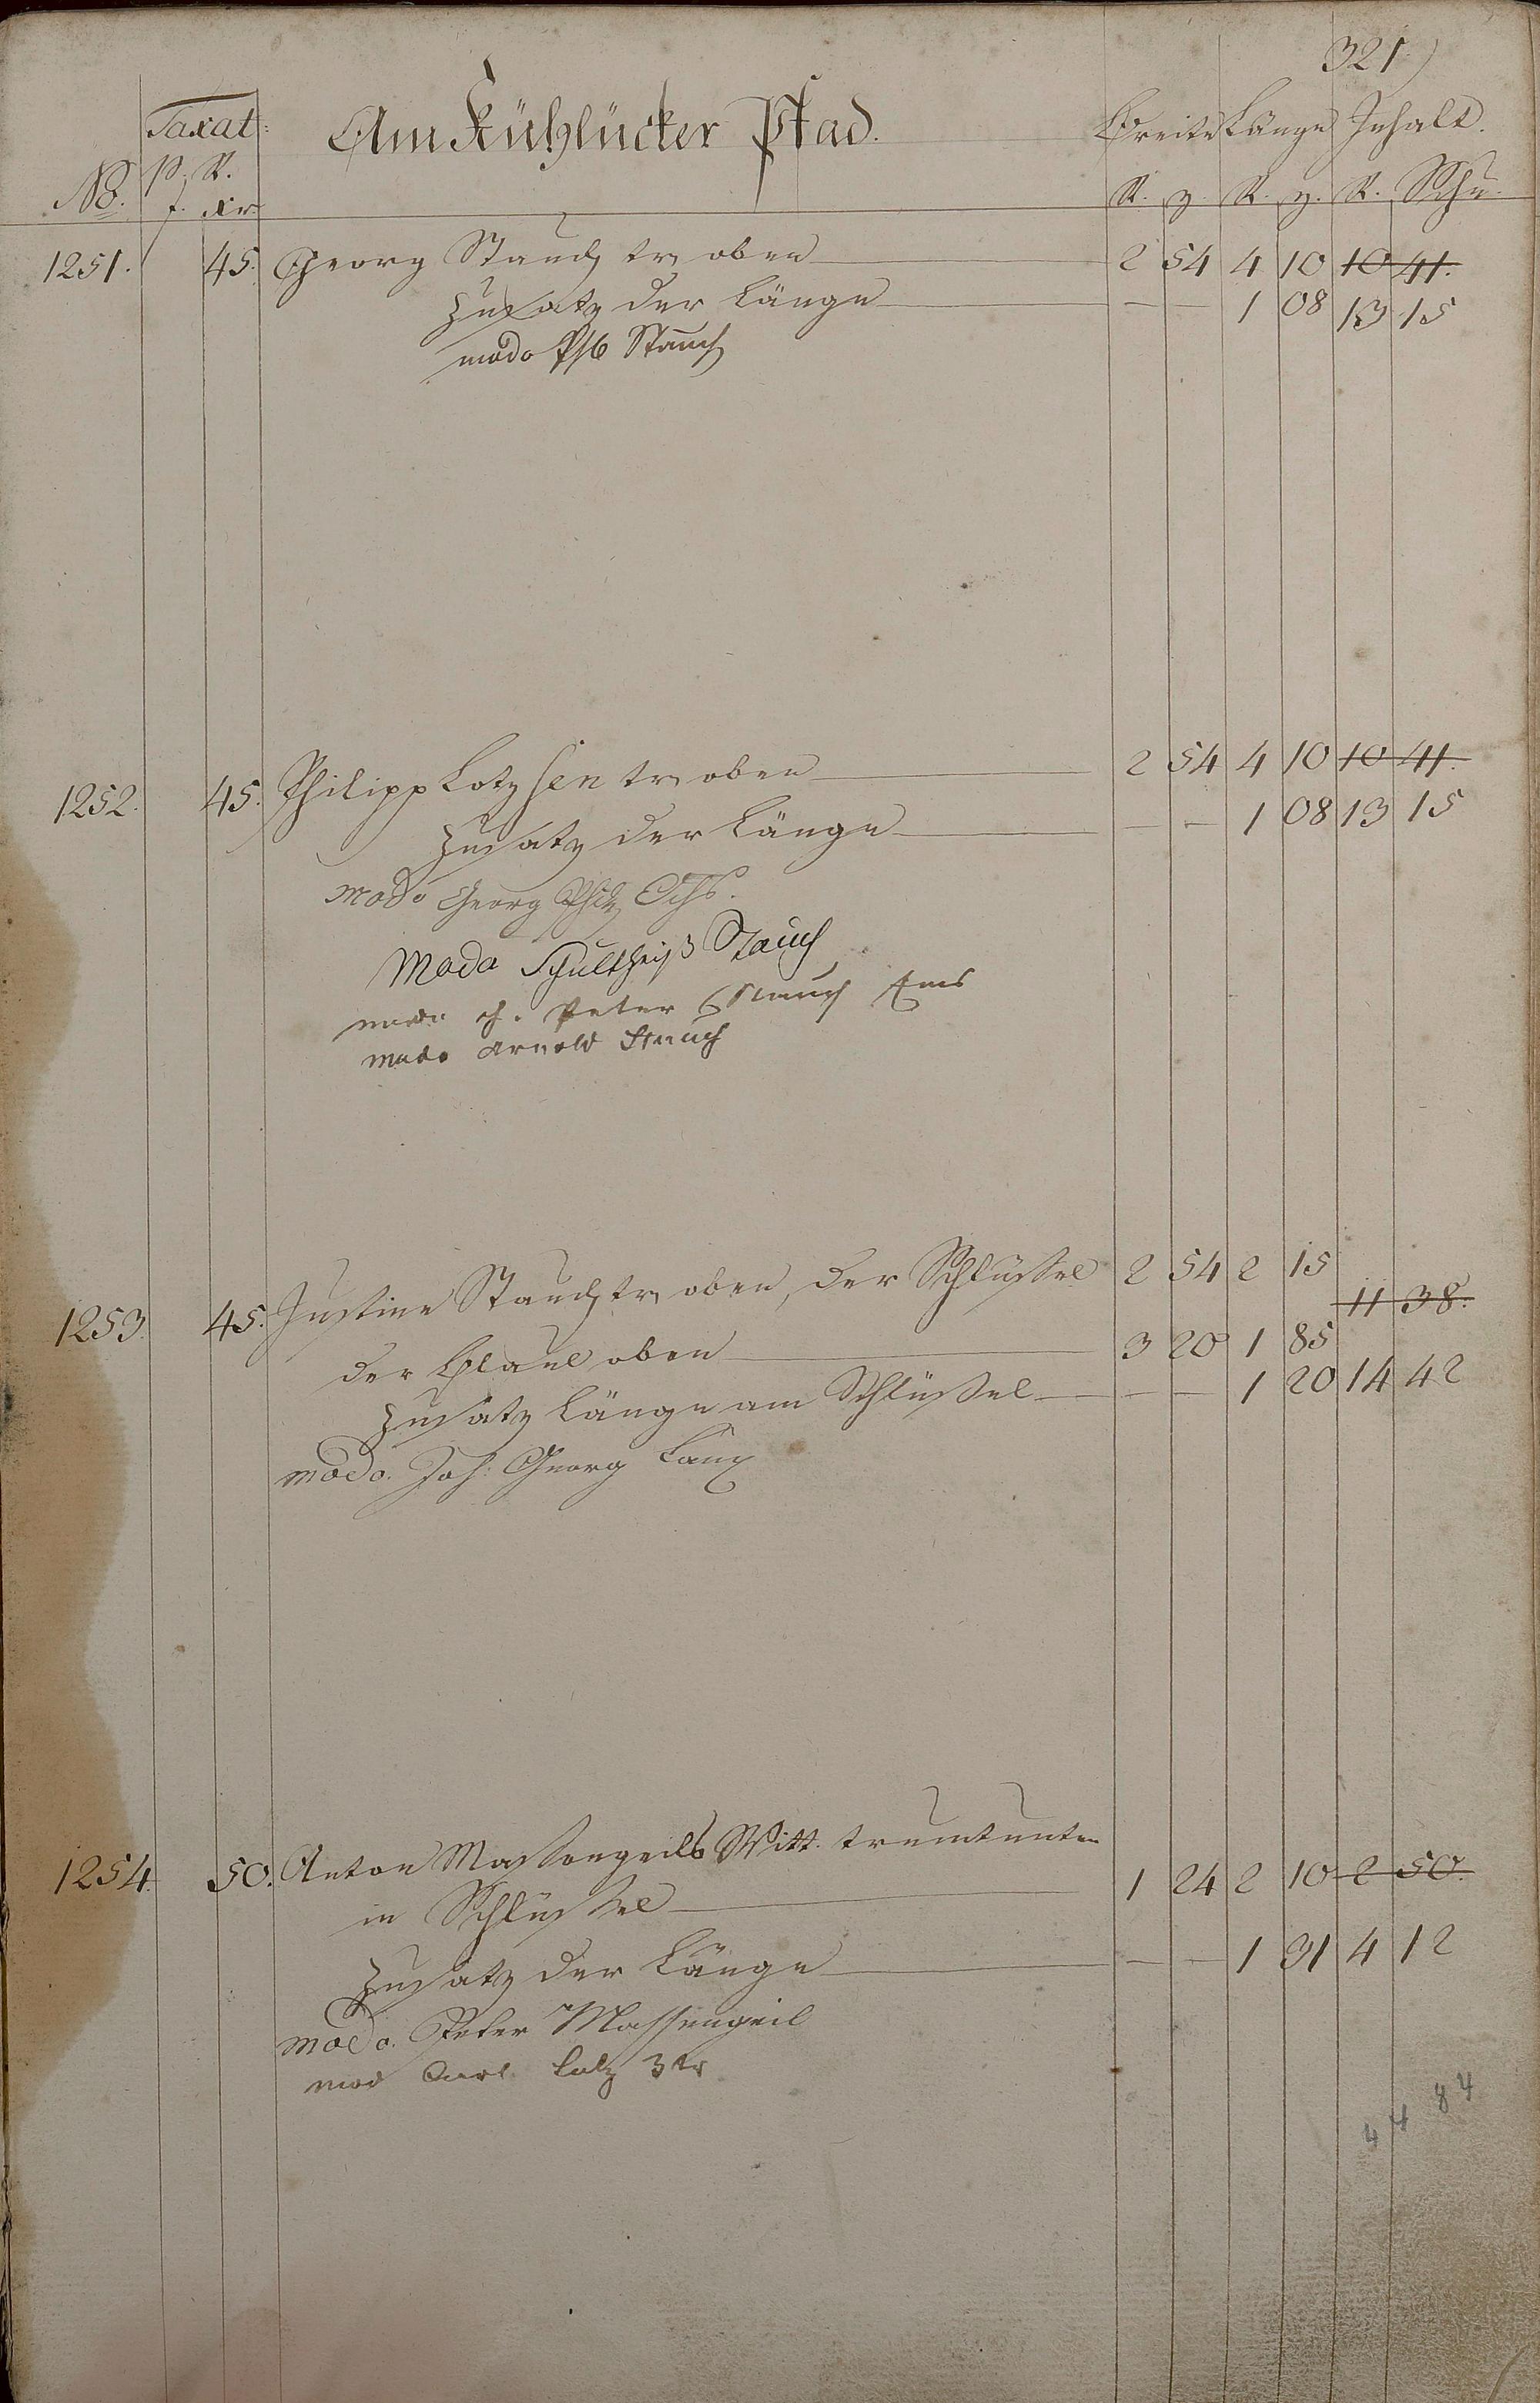 321.
Taxat: Am Kühlücker Pfad. Breite Länge Inhalt.
No. p. R. R. z. R. z. R. Schu.
f. xr
1251. 45. Georg Stauch tr. oben 2 54 4 10 10 41.
Zusatz der Länge — — 1 08 13 15
modo Stauch
1252. 45. Philipp Lotz sen tr. oben 2 54 4 10 10 41.
Zusatz der Länge — — 1 08 13 15
modo Georg Ochs.
Modo Schultheiß Stauch
modo Peter Stauch Ems
modo Arnold Stauch
1253. 45. Justine Stauch tr. oben, der Schlüssel 2 54 2 15
11 38.
der Blaul oben 3 20 1 85
Zusatz Länge am Schlüssel — — 1 20 14 42
modo. Joh: Georg Laux
1254. 50. Anton Massengeils Witt. trumt unten
in Schlüssel 1 24 2 10 2 50.
Zusatz der Länge — — 1 31 4 12
modo. Peter Massengeil
mod Carl Lotz 3tr
44 84